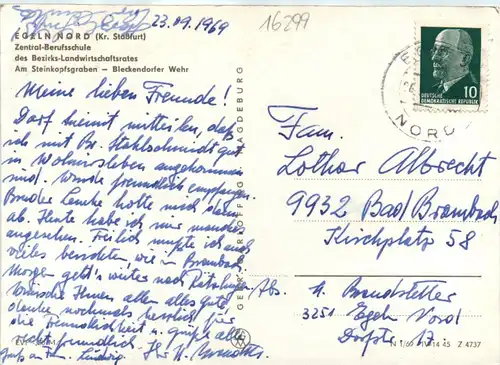 23.09.1969
16299
EGELN NORD (Kr. Staßfurt)
Zentral-Berufsschule
des Bezirks-Landwirtschaftsrates
Am Steinkopfsgraben – Bleckendorfer Wehr
Meine lieben Freunde!
Darf hiermit mitteilen, daß
ich mit Br. Stahlschmidt gut
in Wolmirsleben angekommen
sind. Wurde freundlich empfangen.
Bruder holte mich dann
ab. Heute habe ich mir manches
angesehen. Freilich mußte ich auch
vieles berichten wie in Brambach.
Morgen geht's weiter nach
Wünsche Ihnen allen alles gute
danke nochmals herzlich für
die Freundlichkeit u. grüße alle
recht freundlich. Ihr H. Brandstetter
Gruß an Fam. Ludwig.
MAGDEBURG
DEUTSCHE
DEMOKRATISCHE REPUBLIK
10
NORD
Fam.
Lothar Albrecht
9932 Bad Brambach
Kirchplatz 58
Abs. H. Brandstetter
3251 Egeln Nord
Dorfstr. 17
N 1/69 IV 14 45 Z 4737